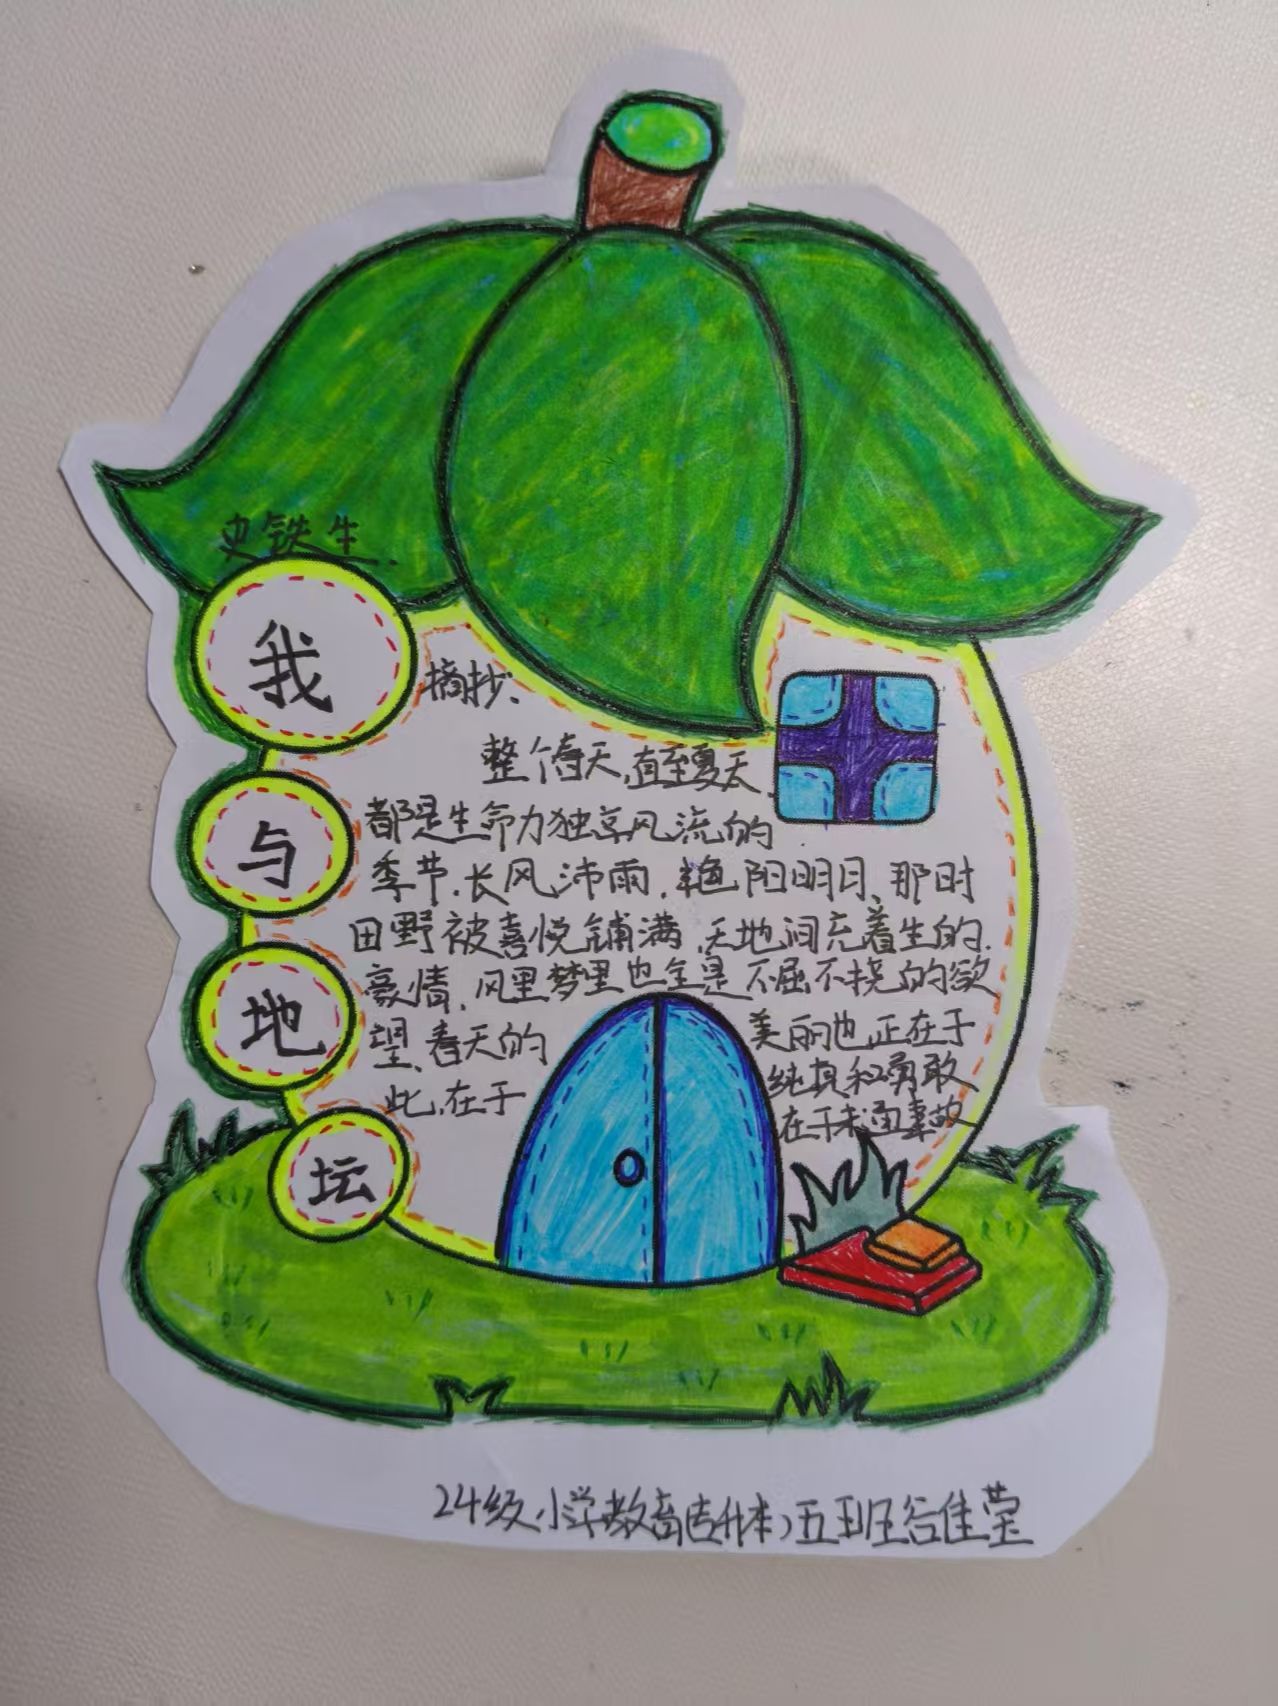 史铁生
我与地坛
摘抄:
整个春天,直至夏天,
都是生命力独享风流的
季节,长风沛雨,艳阳明日、那时
田野被喜悦铺满,天地间充着生的
豪情,风里梦里也全是不屈不挠的欲
望、春天的美丽也正在于
此,在于纯真和勇敢
在于未通事故
24级小学教育(专升本)五班谷佳莹